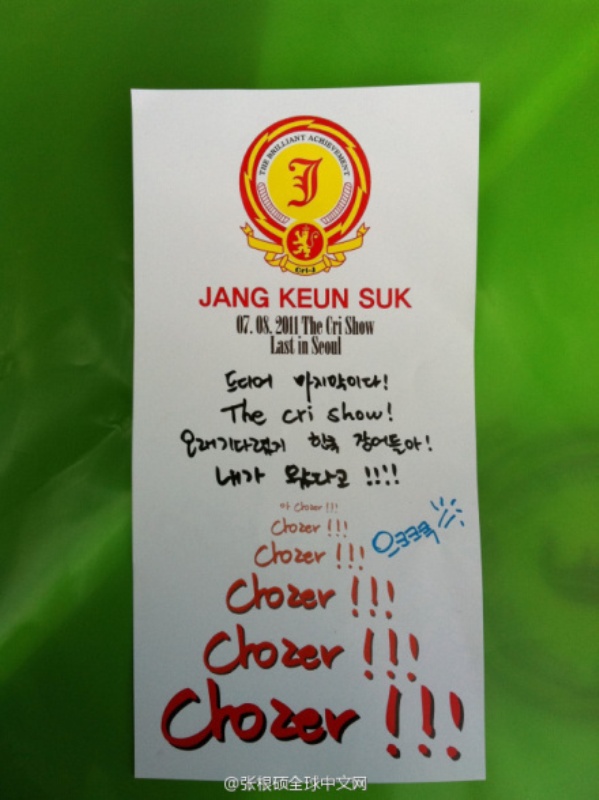 THE BRILLIANT ACHIEVEMENT
J
Cri-J
JANG KEUN SUK
07. 08. 2011 The Cri Show
Last in Seoul
드디어 마지막이다!
The cri show!
오래기다렸지 한국 장어들아!
내가 왔다고 !!!!
아 Chozer !!!
Chozer !!!
Chozer !!!
으크크큭
Chozer !!!
Chozer !!!
Chozer !!!
@张根硕全球中文网